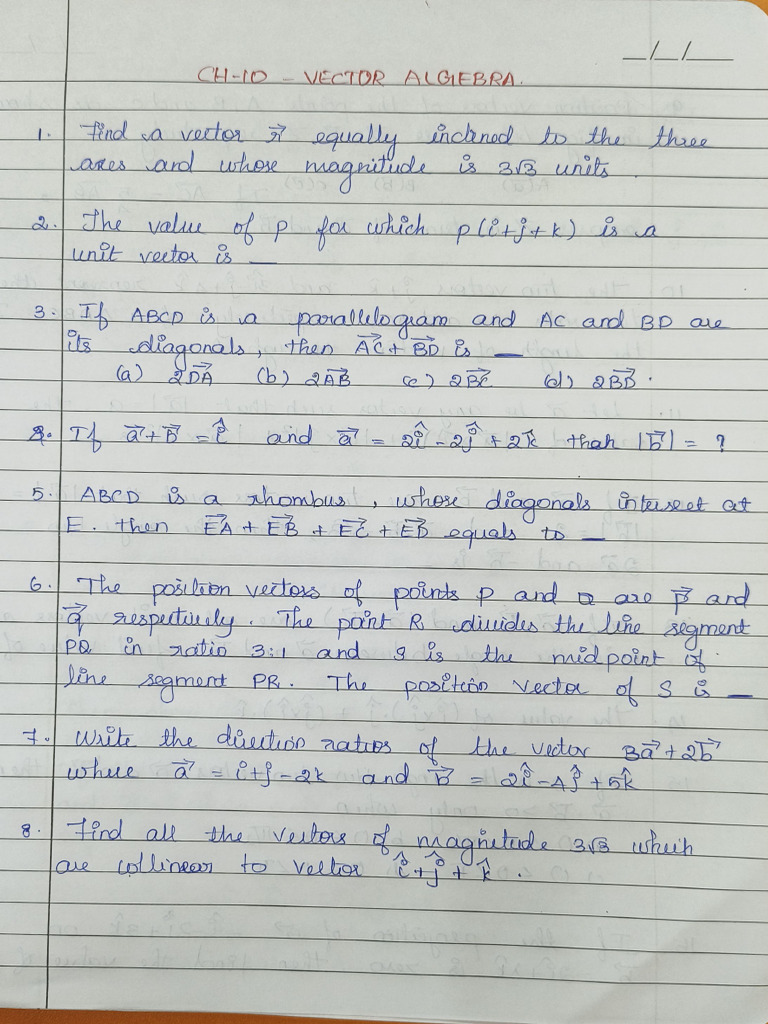 _/_/__
CH-10 - VECTOR ALGEBRA.
1. Find a vector r⃗ equally inclined to the three
axes and whose magnitude is 3√3 units.
2. The value of p for which p(i+j+k) is a
unit vector is _
3. If ABCD is a parallelogram and AC and BD are
its diagonals, then A⃗C + B⃗D is _
(a) 2D⃗A (b) 2A⃗B (c) 2B⃗C (d) 2B⃗D.
4. If a⃗+b⃗ = î and a⃗ = 2î-2ĵ+2k̂ than |b⃗| = ?
5. ABCD is a rhombus, whose diagonals interset at
E. then E⃗A + E⃗B + E⃗C + E⃗D equals to _
6. The position vectors of points P and Q are p⃗ and
q⃗ respectively. The point R divides the line segment
PQ in ratio 3:1 and S is the midpoint of
line segment PR. The position vector of S is _
7. Write the direction ratios of the vector 3a⃗+2b⃗
where a⃗ = i+j-2k and b⃗ = 2î-4ĵ+5k̂
8. Find all the vectors of magnetude 3√3 which
are collinear to vector î+ĵ+k̂.